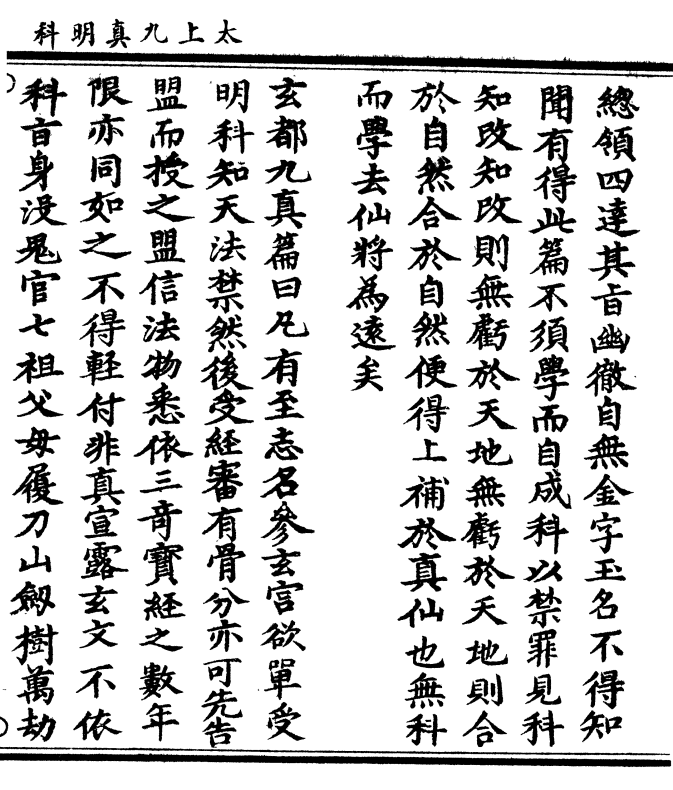 太上九真明科
總領四達其旨幽徹自無金字玉名不得知
聞有得此篇不須學而自成科以禁罪見科
知改知改則無虧於天地無虧於天地則合
於自然合於自然便得上補於真仙也無科
而學去仙將為遠矣
玄都九真篇曰凡有至志名參玄宮欲單受
明科知天法禁然後受經審有骨分亦可先告
盟而授之盟信法物悉依三奇寶經之數年
限亦同如之不得輕付非真宣露玄文不依
科盲身沒鬼官七祖父母履刀山劒樹萬劫